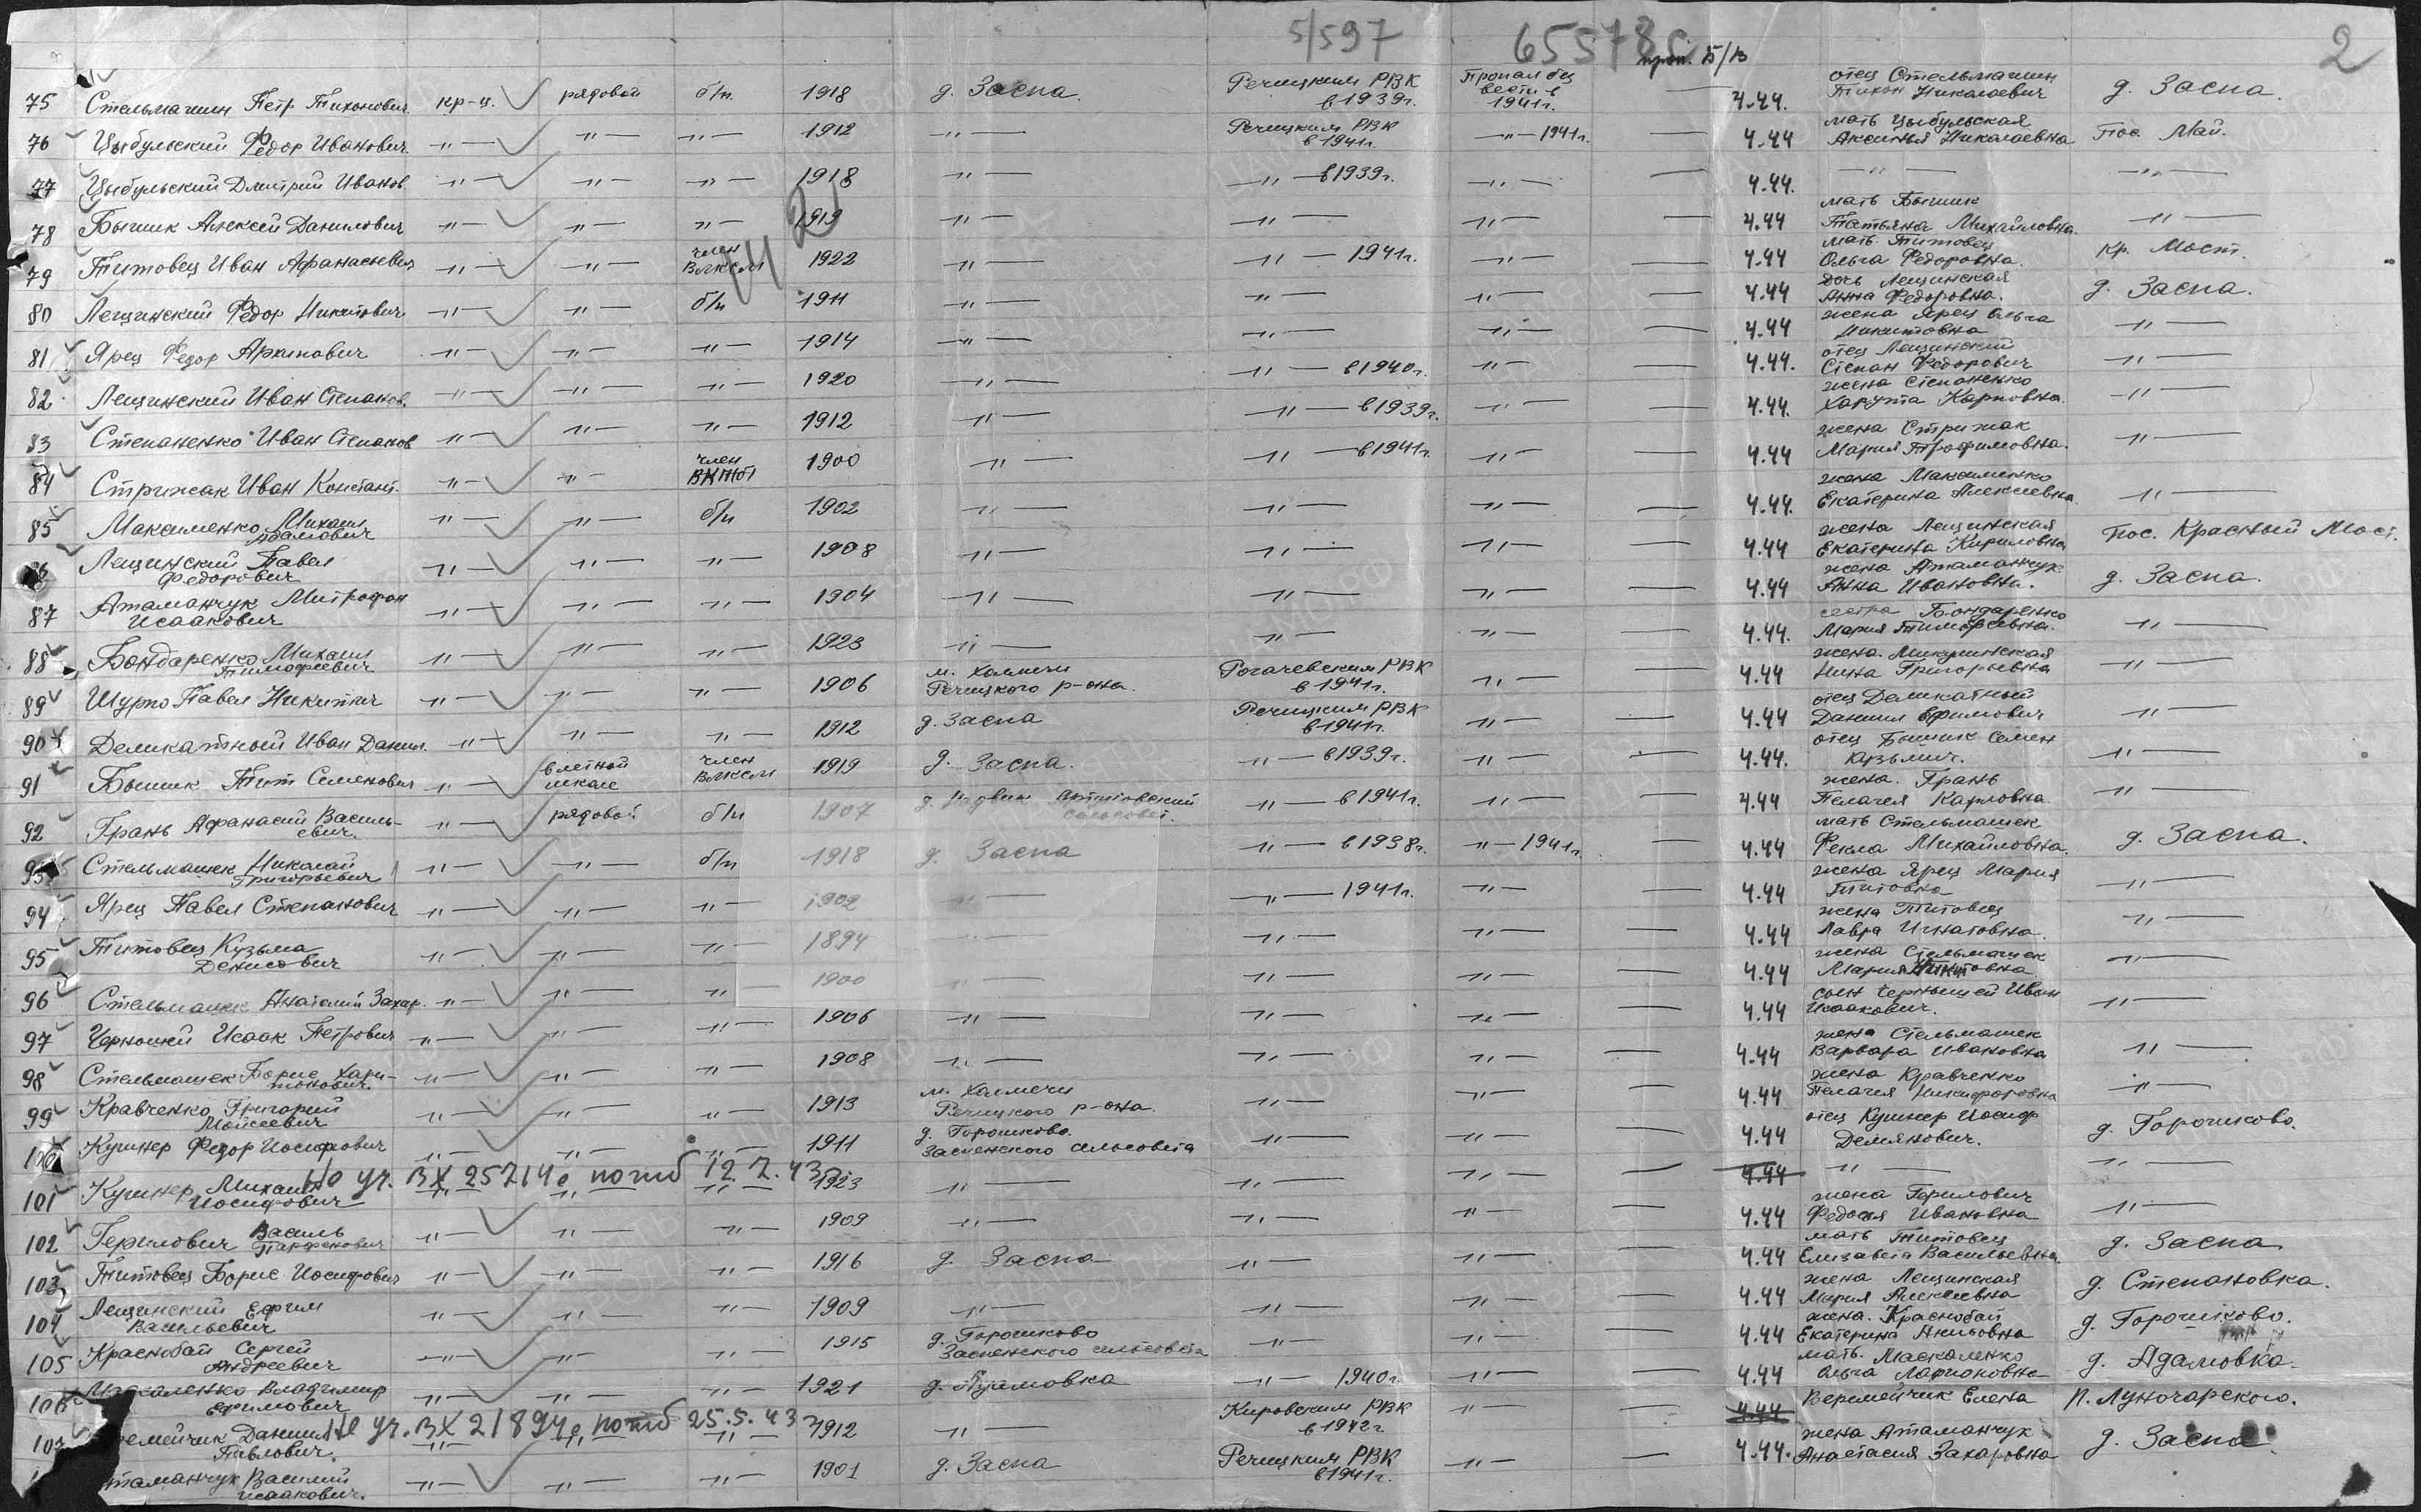 5/597 65578с 2
проп. Б/В
75 Стельмашин Петр Тихонович кр-ц. рядовой б/п. 1918 д. Заспа. Речицким РВК в 1939г. Пропал без вести в 1941г. — 4.44. отец Стельмашин Тихон Николаевич д. Заспа.
76 Цыбульский Федор Иванович -"- -"- -"- 1912 -"- Речицким РВК в 1941г. -"- 1941г. — 4.44 мать Цыбульская Аксинья Николаевна пос. Май.
77 Цыбульский Дмитрий Иванов. -"- -"- -"- 1918 -"- -"- в 1939г. -"- — 4.44. -"- -"-
78 Бышик Алексей Данилович -"- -"- -"- 1919 -"- -"- -"- — 4.44 мать Бышик Татьяна Михайловна. -"-
79 Титовец Иван Афанасьевич -"- -"- член ВЛКСМ 1922 -"- -"- 1941г. -"- — 4.44 мать Титовец Ольга Федоровна. Кр. Мост.
80 Лещинский Федор Никитович -"- -"- б/п 1911 -"- -"- -"- — 4.44 дочь Лещинская Анна Федоровна. д. Заспа.
81 Ярец Федор Архипович -"- -"- -"- 1914 -"- -"- -"- — 4.44 жена Ярец Ольга Никитовна -"-
82 Лещинский Иван Степанов. -"- -"- -"- 1920 -"- -"- в 1940г. -"- — 4.44. отец Лещинский Степан Федорович -"-
83 Степаненко Иван Степанов -"- -"- -"- 1912 -"- -"- в 1939г. -"- — 4.44. жена Степаненко Карповна. -"-
84 Стрижак Иван Констант. -"- -"- член ВКП(б) 1900 -"- -"- в 1941г. -"- — 4.44 жена Стрижак Мария Трофимовна. -"-
85 Максименко Михаил -"- -"- б/п 1902 -"- -"- -"- — 4.44. жена Максименко Екатерина Алексеевна -"-
86 Лещинский Павел Федорович -"- -"- -"- 1908 -"- -"- -"- — 4.44 жена Лещинская Екатерина Кириловна пос. Красный Мост.
87 Атаманчук Митрофан Исаакович -"- -"- -"- 1904 -"- -"- -"- — 4.44 жена Атаманчук Анна Ивановна. д. Заспа.
88 Бондаренко Михаил Тимофеевич -"- -"- -"- 1923 -"- -"- -"- — 4.44. сестра Бондаренко Мария Тимофеевна. -"-
89 Шурпо Павел Никитич -"- -"- -"- 1906 м. Холмечи Речицкого р-она. Рогачевским РВК в 1941г. -"- — 4.44 жена Нина Григорьевна -"-
90 Деликатный Иван Данил. -"- -"- -"- 1912 д. Заспа Речицким РВК в 1941г -"- — 4.44 отец Деликатный Даниил Ефимович -"-
91 Бышик Тит Семенович -"- в летной школе член ВЛКСМ 1919 д. Заспа. -"- в 1939г. -"- — 4.44. отец Бышик Семен Кузьмич. -"-
92 Грань Афанасий Васильевич. -"- рядовой б/п 1907 д. сельсовет. -"- в 1941г. -"- — 4.44 жена. Грань Пелагея Карповна -"-
93 Стельмашек Николай Григорьевич -"- -"- б/п 1918 д. Заспа -"- в 1938г. -"- 1941г. — 4.44 мать Стельмашек Фекла Михайловна. д. Заспа.
94 Ярец Павел Степанович -"- -"- -"- 1902 -"- -"- 1941г. -"- — 4.44 жена Ярец Мария Титовна -"-
95 Титовец Кузьма Денисович -"- -"- -"- 1894 -"- -"- -"- — 4.44 жена Титовец Лавра Игнатовна. -"-
96 Стельмашек Анатолий Захар. -"- -"- -"- 1900 -"- -"- -"- — 4.44 жена Стельмашек Мария -"-
97 Черноцкий Исаак Петрович -"- -"- -"- 1906 -"- -"- -"- — 4.44 сын Иван Исаакович. -"-
98 Стельмашек Борис Харитонович. -"- -"- -"- 1908 -"- -"- -"- — 4.44 жена Стельмашек Варвара Ивановна -"-
99 Кравченко Григорий Моисеевич -"- -"- -"- 1913 м. Холмечи Речицкого р-она. -"- -"- — 4.44 жена Кравченко Пелагея Никифоровна -"-
100 Кушнер Федор Иосифович -"- -"- -"- 1911 д. Горошково. Заспенского сельсовета -"- -"- — 4.44 отец Кушнер Иосиф Демянович. д. Горошково.
Не уч. вх 25714с погиб 12.7.43
101 Кушнер Михаил Иосифович -"- -"- -"- 1923 -"- -"- -"- — 4.44 -"- -"-
102 Герилович Василь Парфенович -"- -"- -"- 1909 -"- -"- -"- — 4.44 жена Герилович Федосья Ивановна -"-
103 Титовец Борис Иосифович -"- -"- -"- 1916 д. Заспа -"- -"- — 4.44 мать Титовец Елизавета Васильевна. д. Заспа
104 Лещинский Ефим Васильевич -"- -"- -"- 1909 -"- -"- -"- — 4.44 жена Лещинская Мария Алексеевна д. Степановка.
105 Краснобай Сергей Андреевич -"- -"- -"- 1915 д. Горошково Заспенского сельсовета -"- -"- — 4.44 жена. Краснобай Екатерина д. Горошково.
106 Маскаленко Владимир Ефимович -"- -"- -"- 1921 д. Адамовка -"- 1940г. -"- — 4.44 мать. Маскаленко Ольга Ларионовна д. Адамовка.
Не уч. вх 21894с погиб 25.5.43
107 емейчик Даниил Павлович. -"- -"- -"- 1912 -"- Кировским РВК в 1942г -"- — 4.44 Веремейчик Елена п. Луночарского.
таманчук Василий Исаакович. -"- -"- -"- 1901 д. Заспа Речицким РВК в 1941г. -"- — 4.44. жена Атаманчук Анастасия Захаровна д. Заспа.